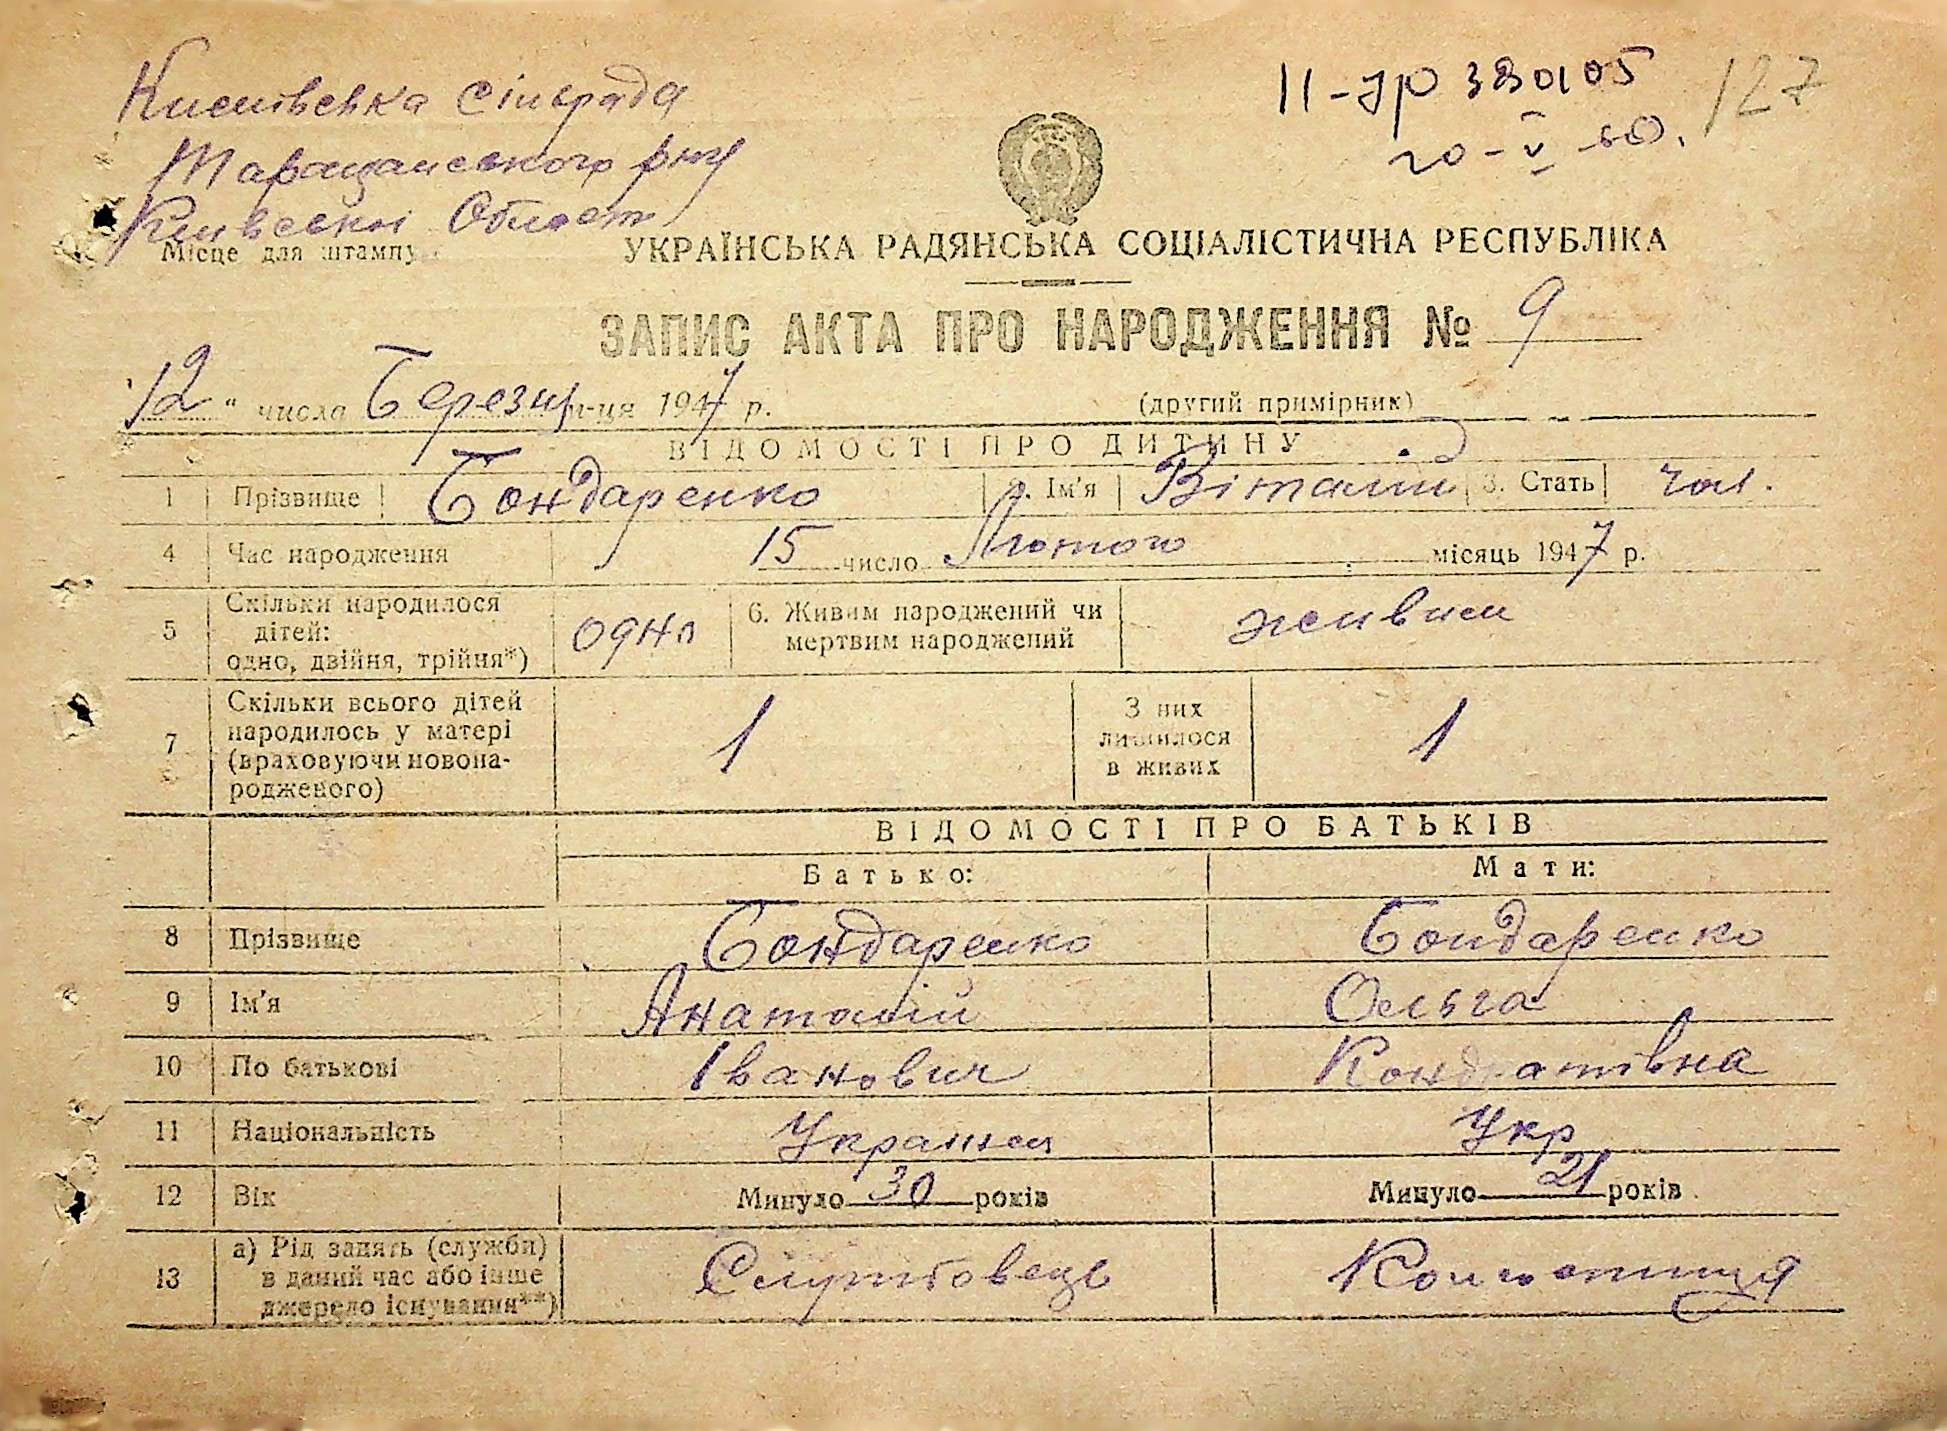 сільрада
Таращанського р-ну
Київської Област
Місце для штампу
ІІ-ЭР 380105
127
20-V-60.
УКРАЇНСЬКА РАДЯНСЬКА СОЦІАЛІСТИЧНА РЕСПУБЛІКА
ЗАПИС АКТА ПРО НАРОДЖЕННЯ № 9
"12" числа Березня м-ця 1947 р.
(другий примірник)
ВІДОМОСТІ ПРО ДИТИНУ
1 Прізвище Бондаренко 2. Ім'я Віталій 3. Стать чол.
4 Час народження 15 число Лютого місяць 1947 р.
5 Скільки народилося дітей: одно, двійня, трійня*) одно 6. Живим народжений чи мертвим народжений живим
7 Скільки всього дітей народилось у матері (враховуючи новонародженого) 1 З них лишилося в живих 1
ВІДОМОСТІ ПРО БАТЬКІВ
Батько: Мати:
8 Прізвище Бондаренко Бондаренко
9 Ім'я Анатолій Ольга
10 По батькові Іванович Кондратівна
11 Національність Українец Укр
12 Вік Минуло 30 років Минуло 21 років
13 а) Рід занять (служби) в даний час або інше джерело існування**) Службовець Колгоспниця